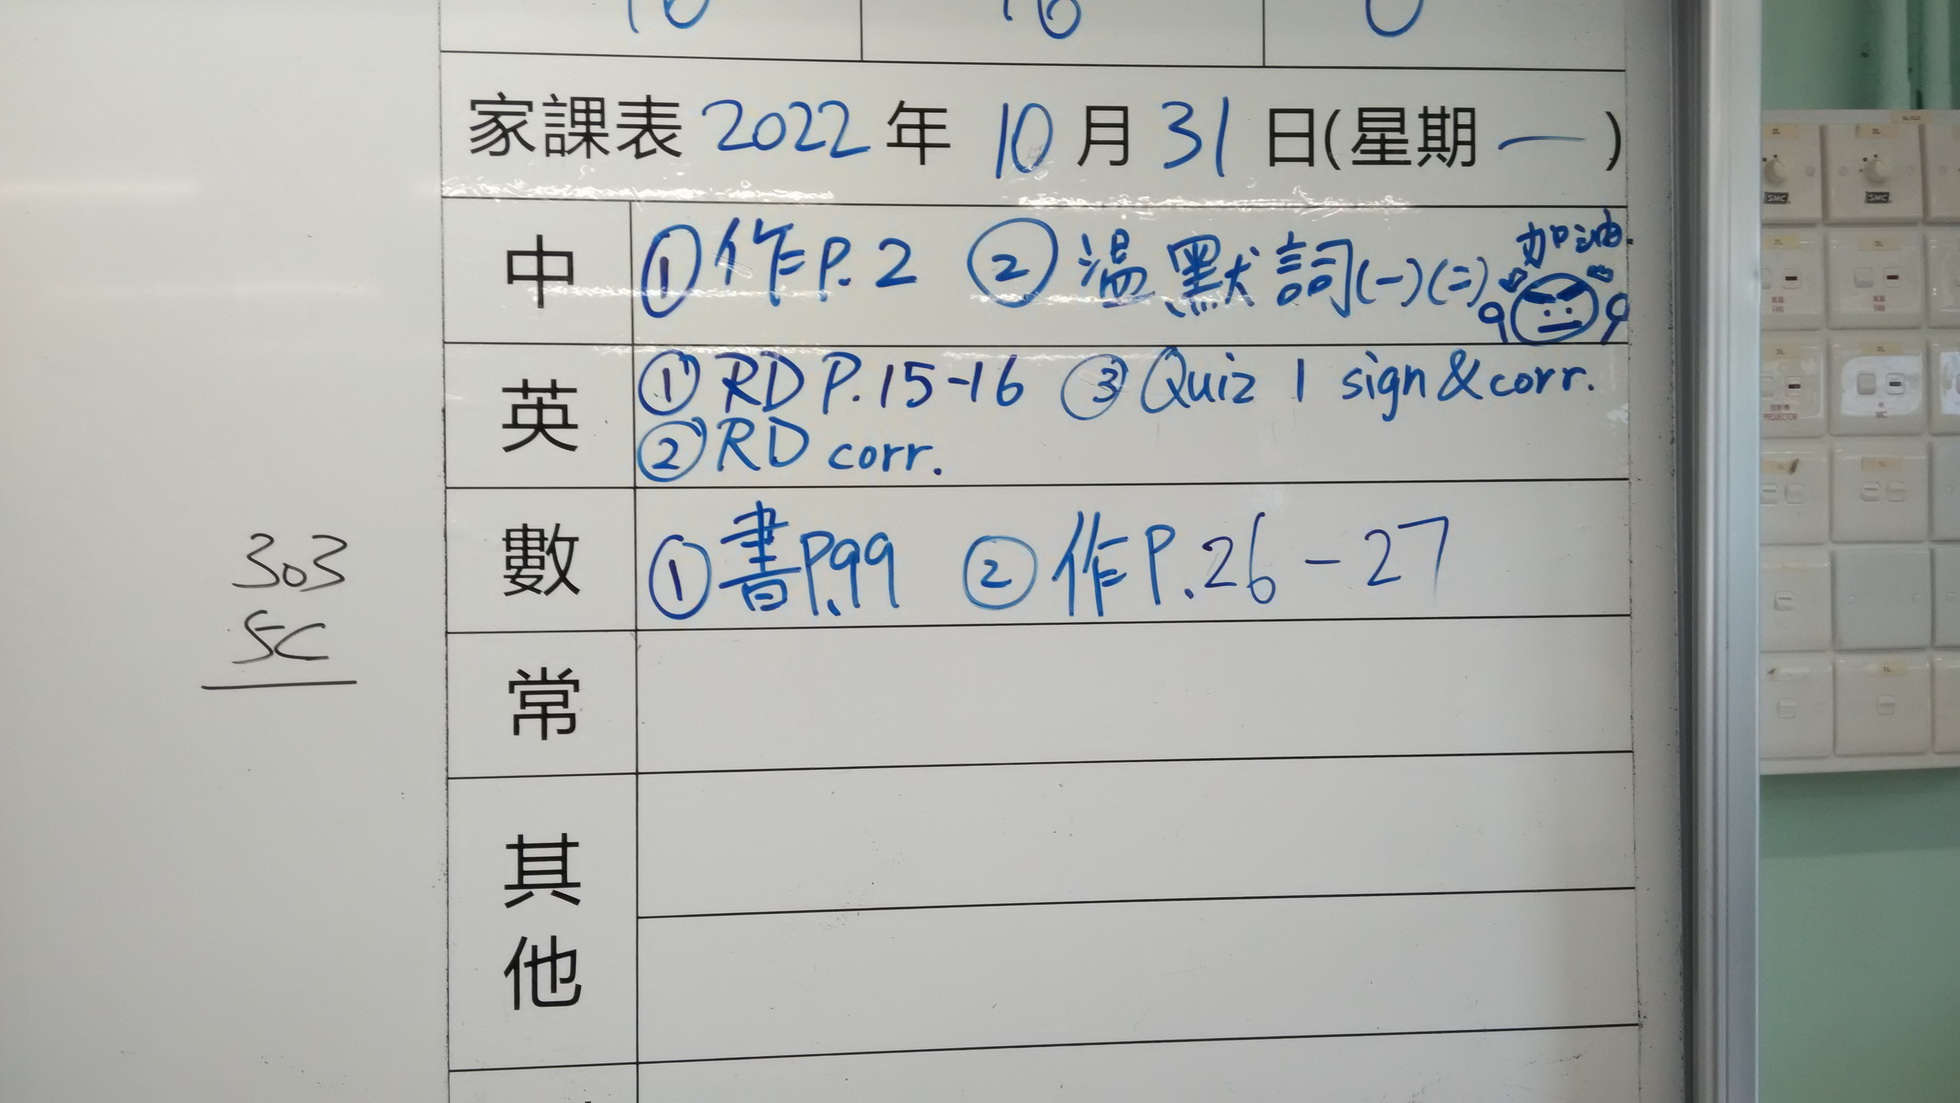 家課表 2022 年 10 月 31 日(星期 一 )
中 ① 作 P. 2 ② 溫 默 詞(一)(二) 加油
英 ① RD P. 15-16 ③ Quiz 1 sign & corr.
② RD corr.
數 ① 書 P.99 ② 作 P. 26 - 27
常
其他
303
5C